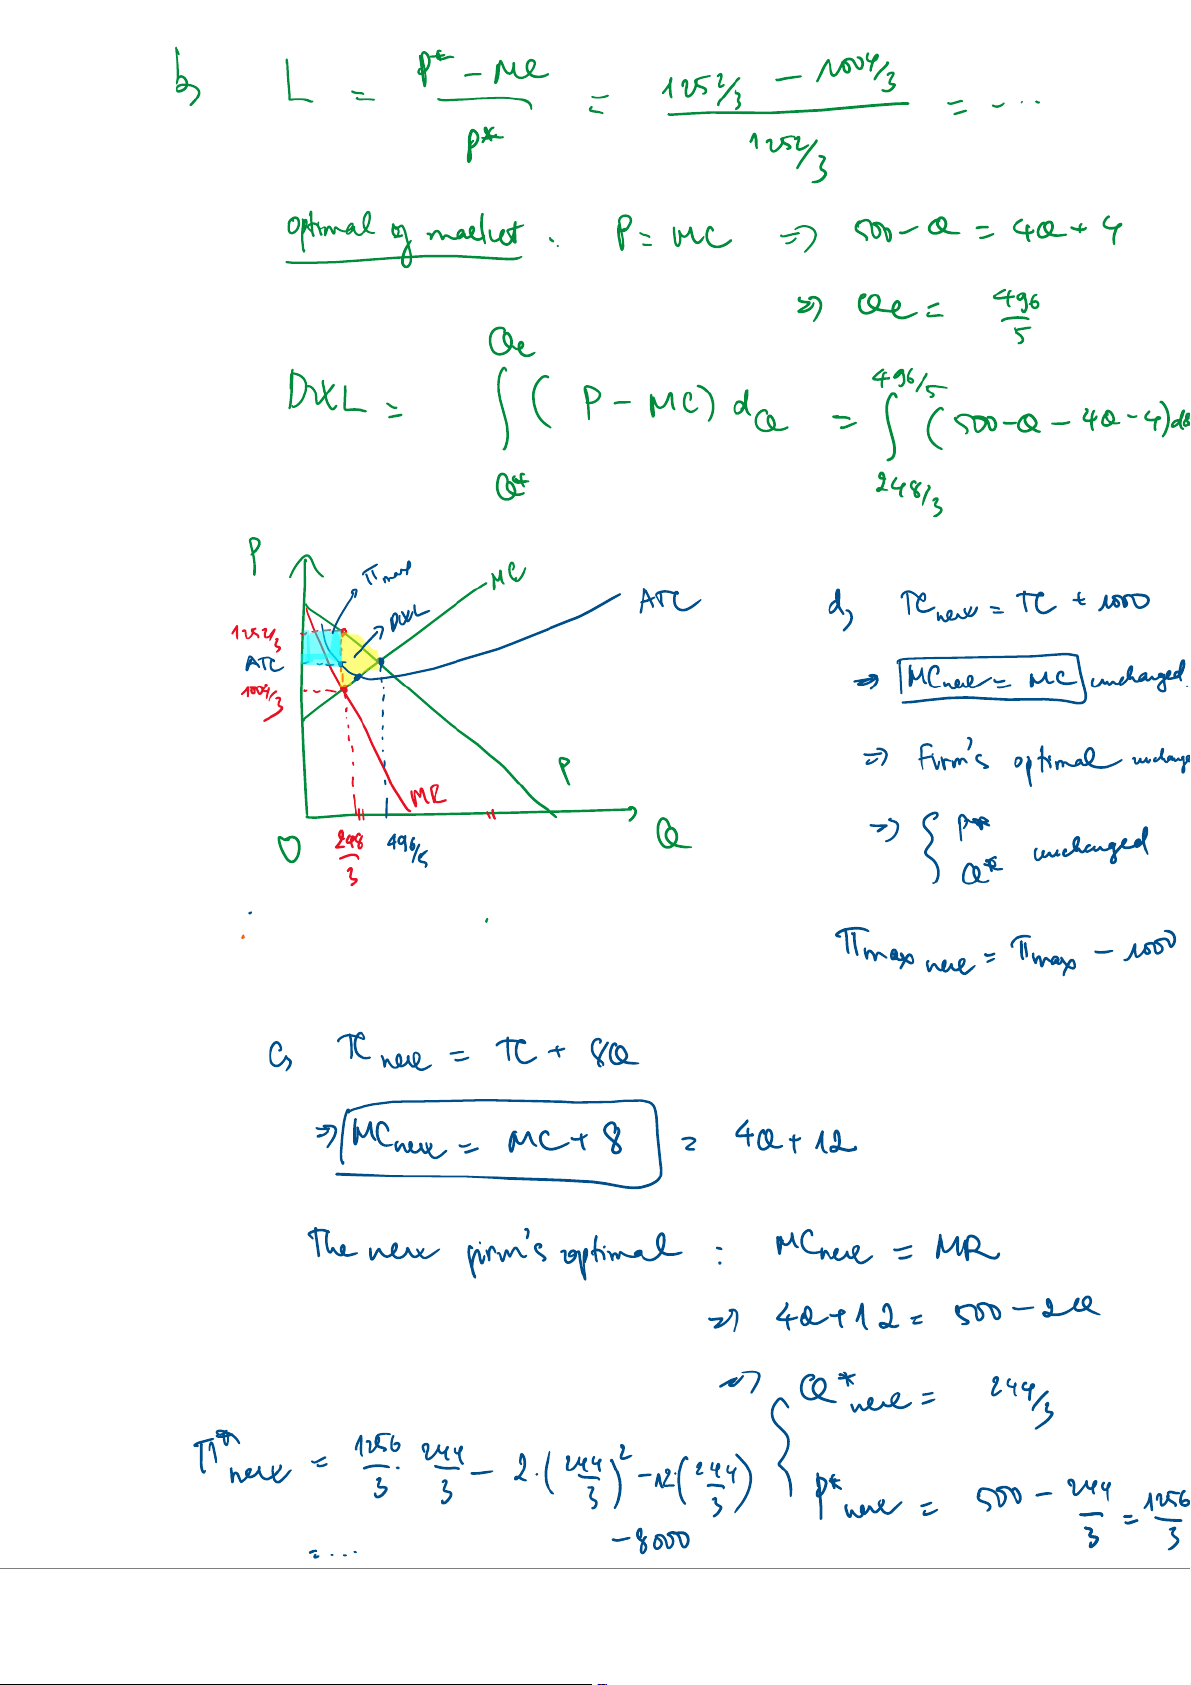 b, L = P* - MC / P* = 1252/3 - 1004/3 / 1252/3 = ...
optimal of market : P = MC => 500 - Q = 4Q + 4
=> Qe = 496/5
DWL = ∫ Qe Q* (P - MC) dQ = ∫ 496/5 248/3 (500 - Q - 4Q - 4) dQ
P
πmax
MC
DWL
ATC
1252/3
ATC
1004/3
MR
P
O
248/3
496/5
Q
d, TCnew = TC + 1000
=> MCnew = MC unchanged.
=> Firm's optimal unchange
=> { P* Q* unchanged
πmax new = πmax - 1000
c, TCnew = TC + 8Q
=> MCnew = MC + 8 = 4Q + 12
The new firm's optimal : MCnew = MR
=> 4Q + 12 = 500 - 2Q
=> { Q*new = 244/3
P*new = 500 - 244/3 = 1256/3
π*new = 1256/3 . 244/3 - 2.(244/3)² - 12.(244/3) - 8000
= ...